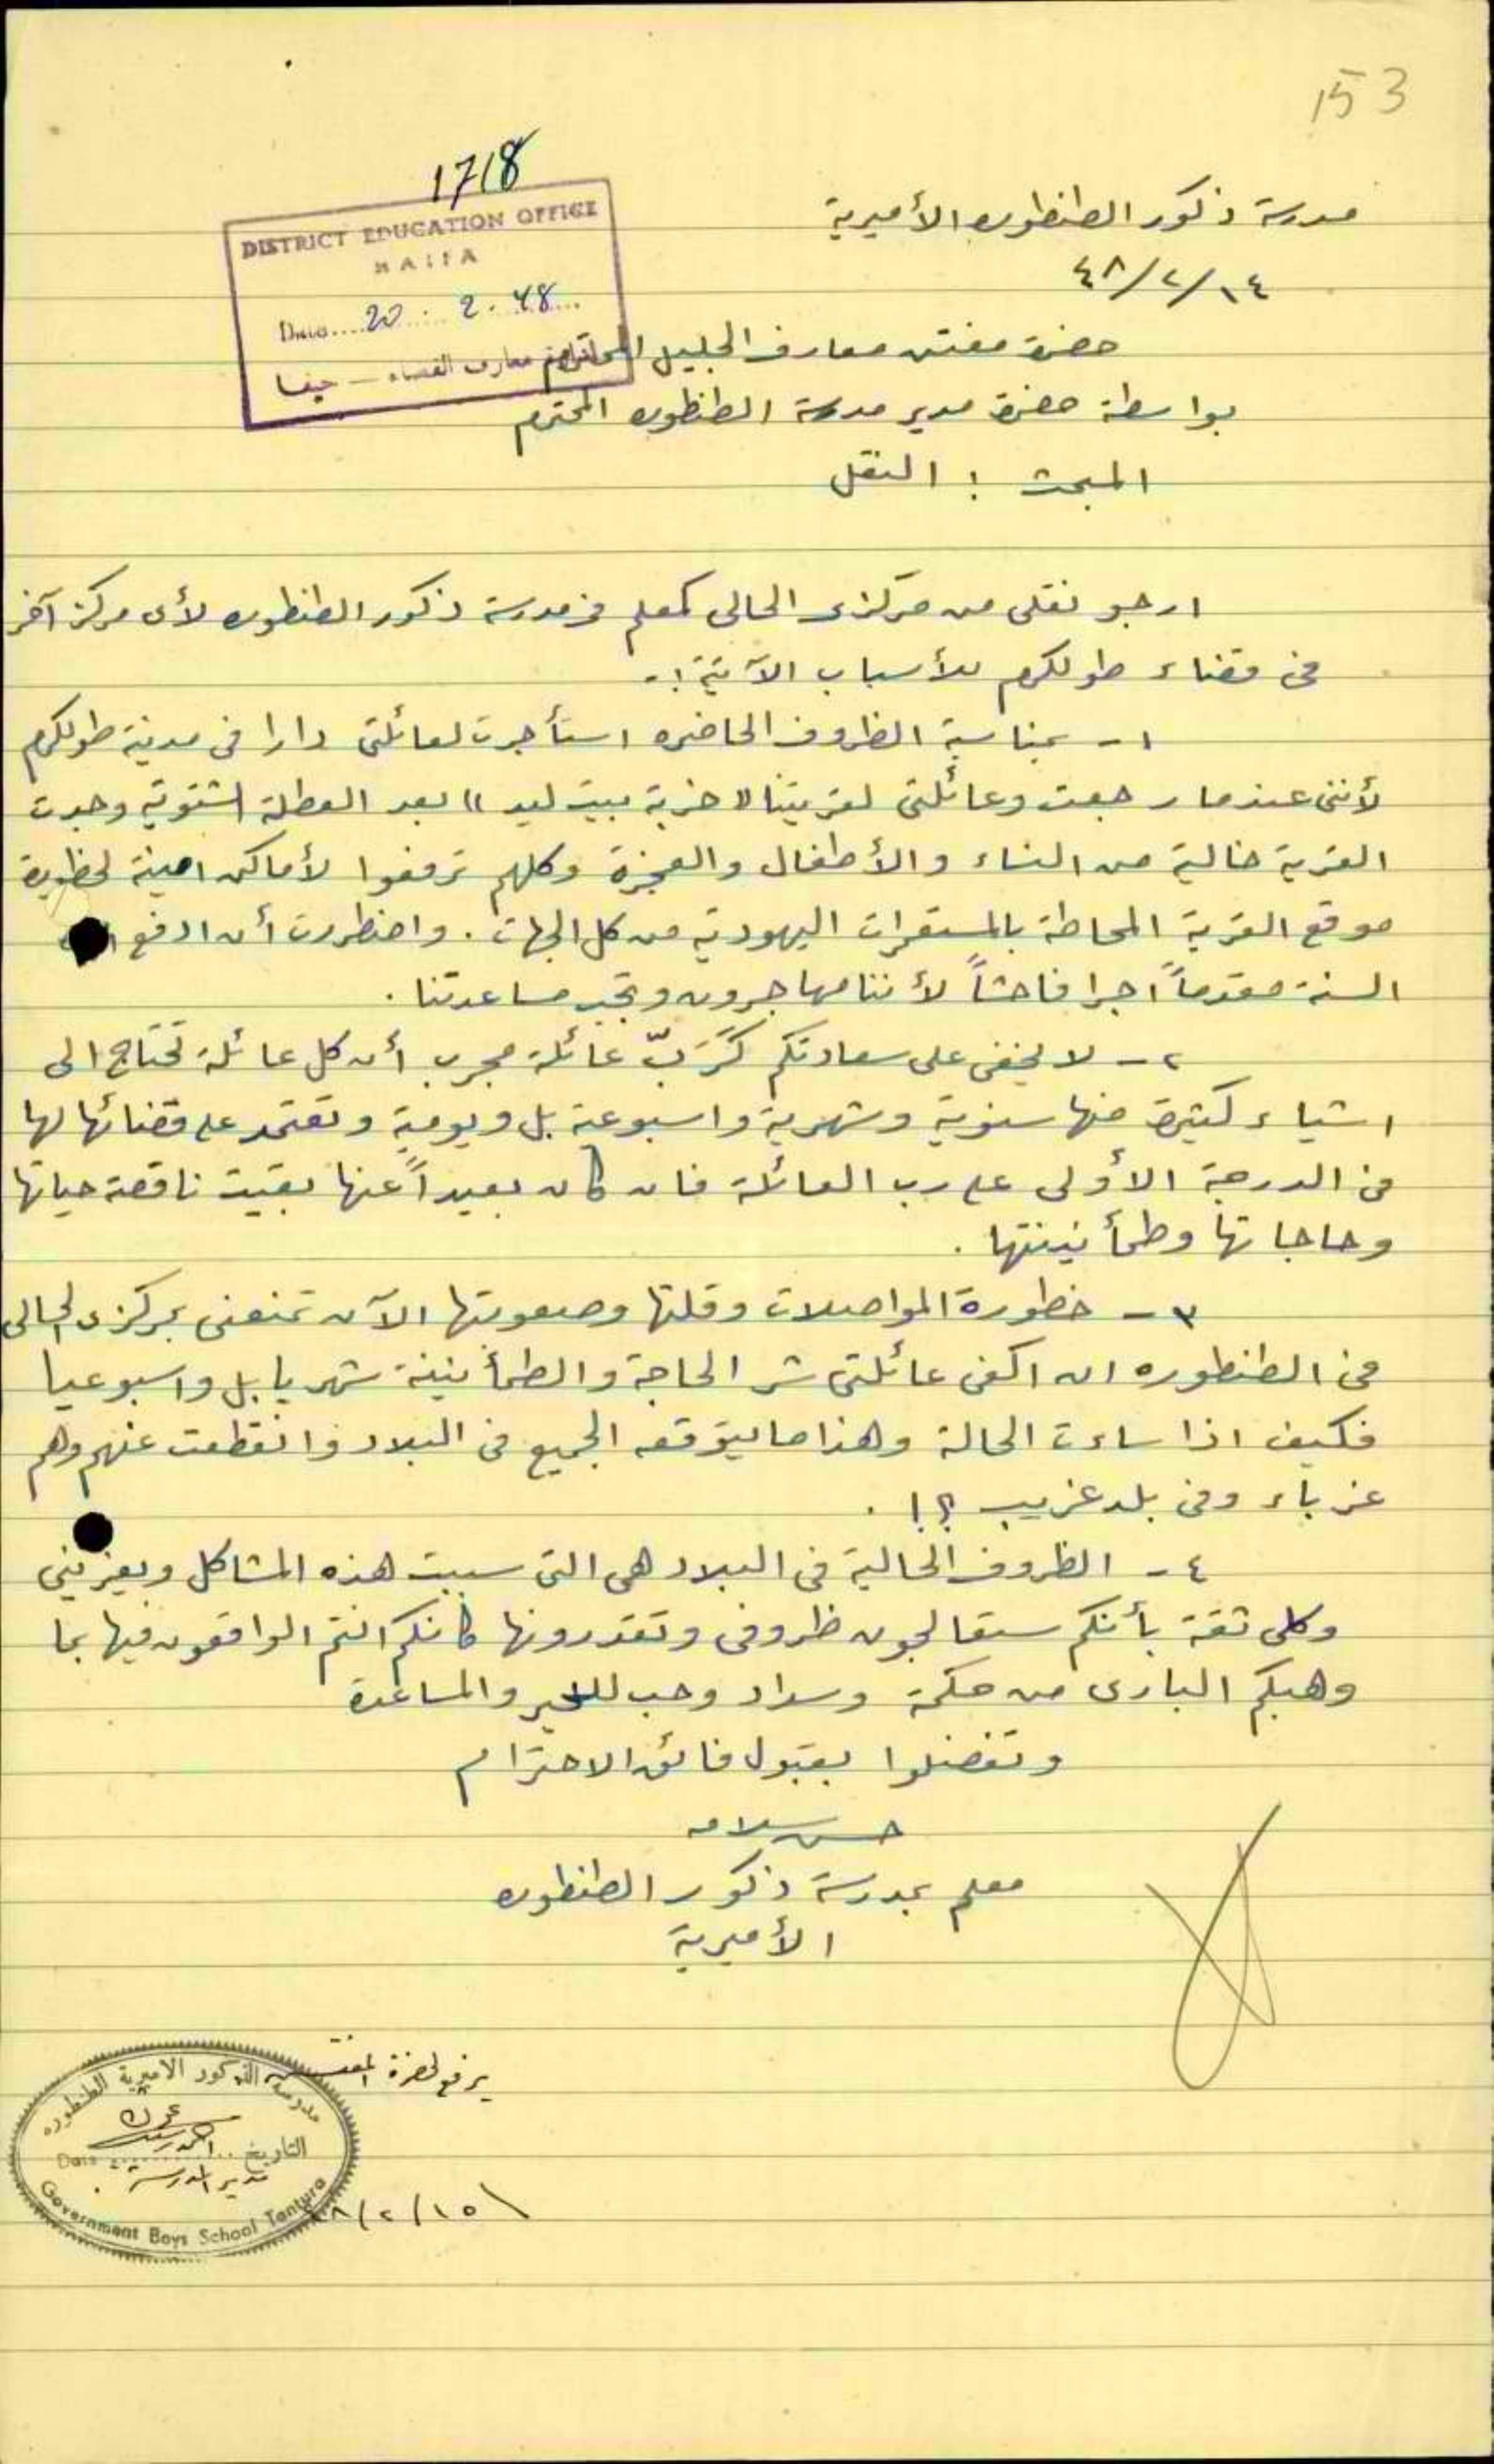 153
1718
DISTRICT EDUCATION OFFICE
HAIFA
Date.... 20 . 2 . 48 ...
معارف القضاء – حيفا
مدرسة ذكور الطنطوره الأميرية
١٤/٢/٤٨
حضرة مفتش معارف الجليل المحترم
بواسطة حضرة مدير مدرسة الطنطوره المحترم
المبحث : النقل
ارجو نقلي من مركزي الحالي كمعلم في مدرسة ذكور الطنطوره لأي مركز آخر
في قضاء طولكرم للأسباب الآتية :-
١- بمناسبة الظروف الحاضره استأجرت لعائلتي دارا في مدينة طولكرم
لأنني عندما رجعت وعائلتي لقريتنا "خربة بيت ليد" بعد العطلة الشتوية وجدت
القرية خالية من النساء والأطفال والعجزة وكلهم ترفعوا لأماكن امينة لخطورة
موقع القرية المحاطة بالمستعمرات اليهودية من كل الجهات . واضطررت أن ادفع
السنة مقدماً اجرا فاحشاً لأننا مهاجرون وتجب مساعدتنا .
٢- لا يخفى على سعادتكم كَرَبّ عائلة مجرب أن كل عائلة تحتاج الى
اشياء كثيرة منها سنوية وشهرية واسبوعية بل ويومية وتعتمد على قضائها لها
في الدرجة الأولى على رب العائلة فان كان بعيداً عنها بقيت ناقصة حياتها
وحاجاتها وطمأنينتها .
٣- خطورة المواصلات وقلتها وصعوبتها الآن تمنعني بمركزي الحالي
في الطنطوره ان اكفي عائلتي شر الحاجة والطمأنينة شهريا بل واسبوعيا
فكيف اذا ساءت الحالة وهذا ما يتوقعه الجميع في البلاد وانقطعت عنهم وهم
غرباء وفي بلد غريب ؟! .
٤- الظروف الحالية في البلاد هي التي سببت هذه المشاكل ويعزيني
وكلي ثقة بأنكم ستعالجون ظروفي وتقدرونها كأنكم انتم الواقعون فيها بما
وهبكم الباري من حكمة وسداد وحب للخير والمساعدة
وتفضلوا بقبول فائق الاحترام
حسن سلامه
معلم بمدرسة ذكور الطنطوره
الأميرية
يرفع لحضرة المفتش
مدرسة الذكور الاميرية الطنطوره
التاريخ Date
مدير المدرسة
Government Boys School Tantura
١٥/٢/٤٨